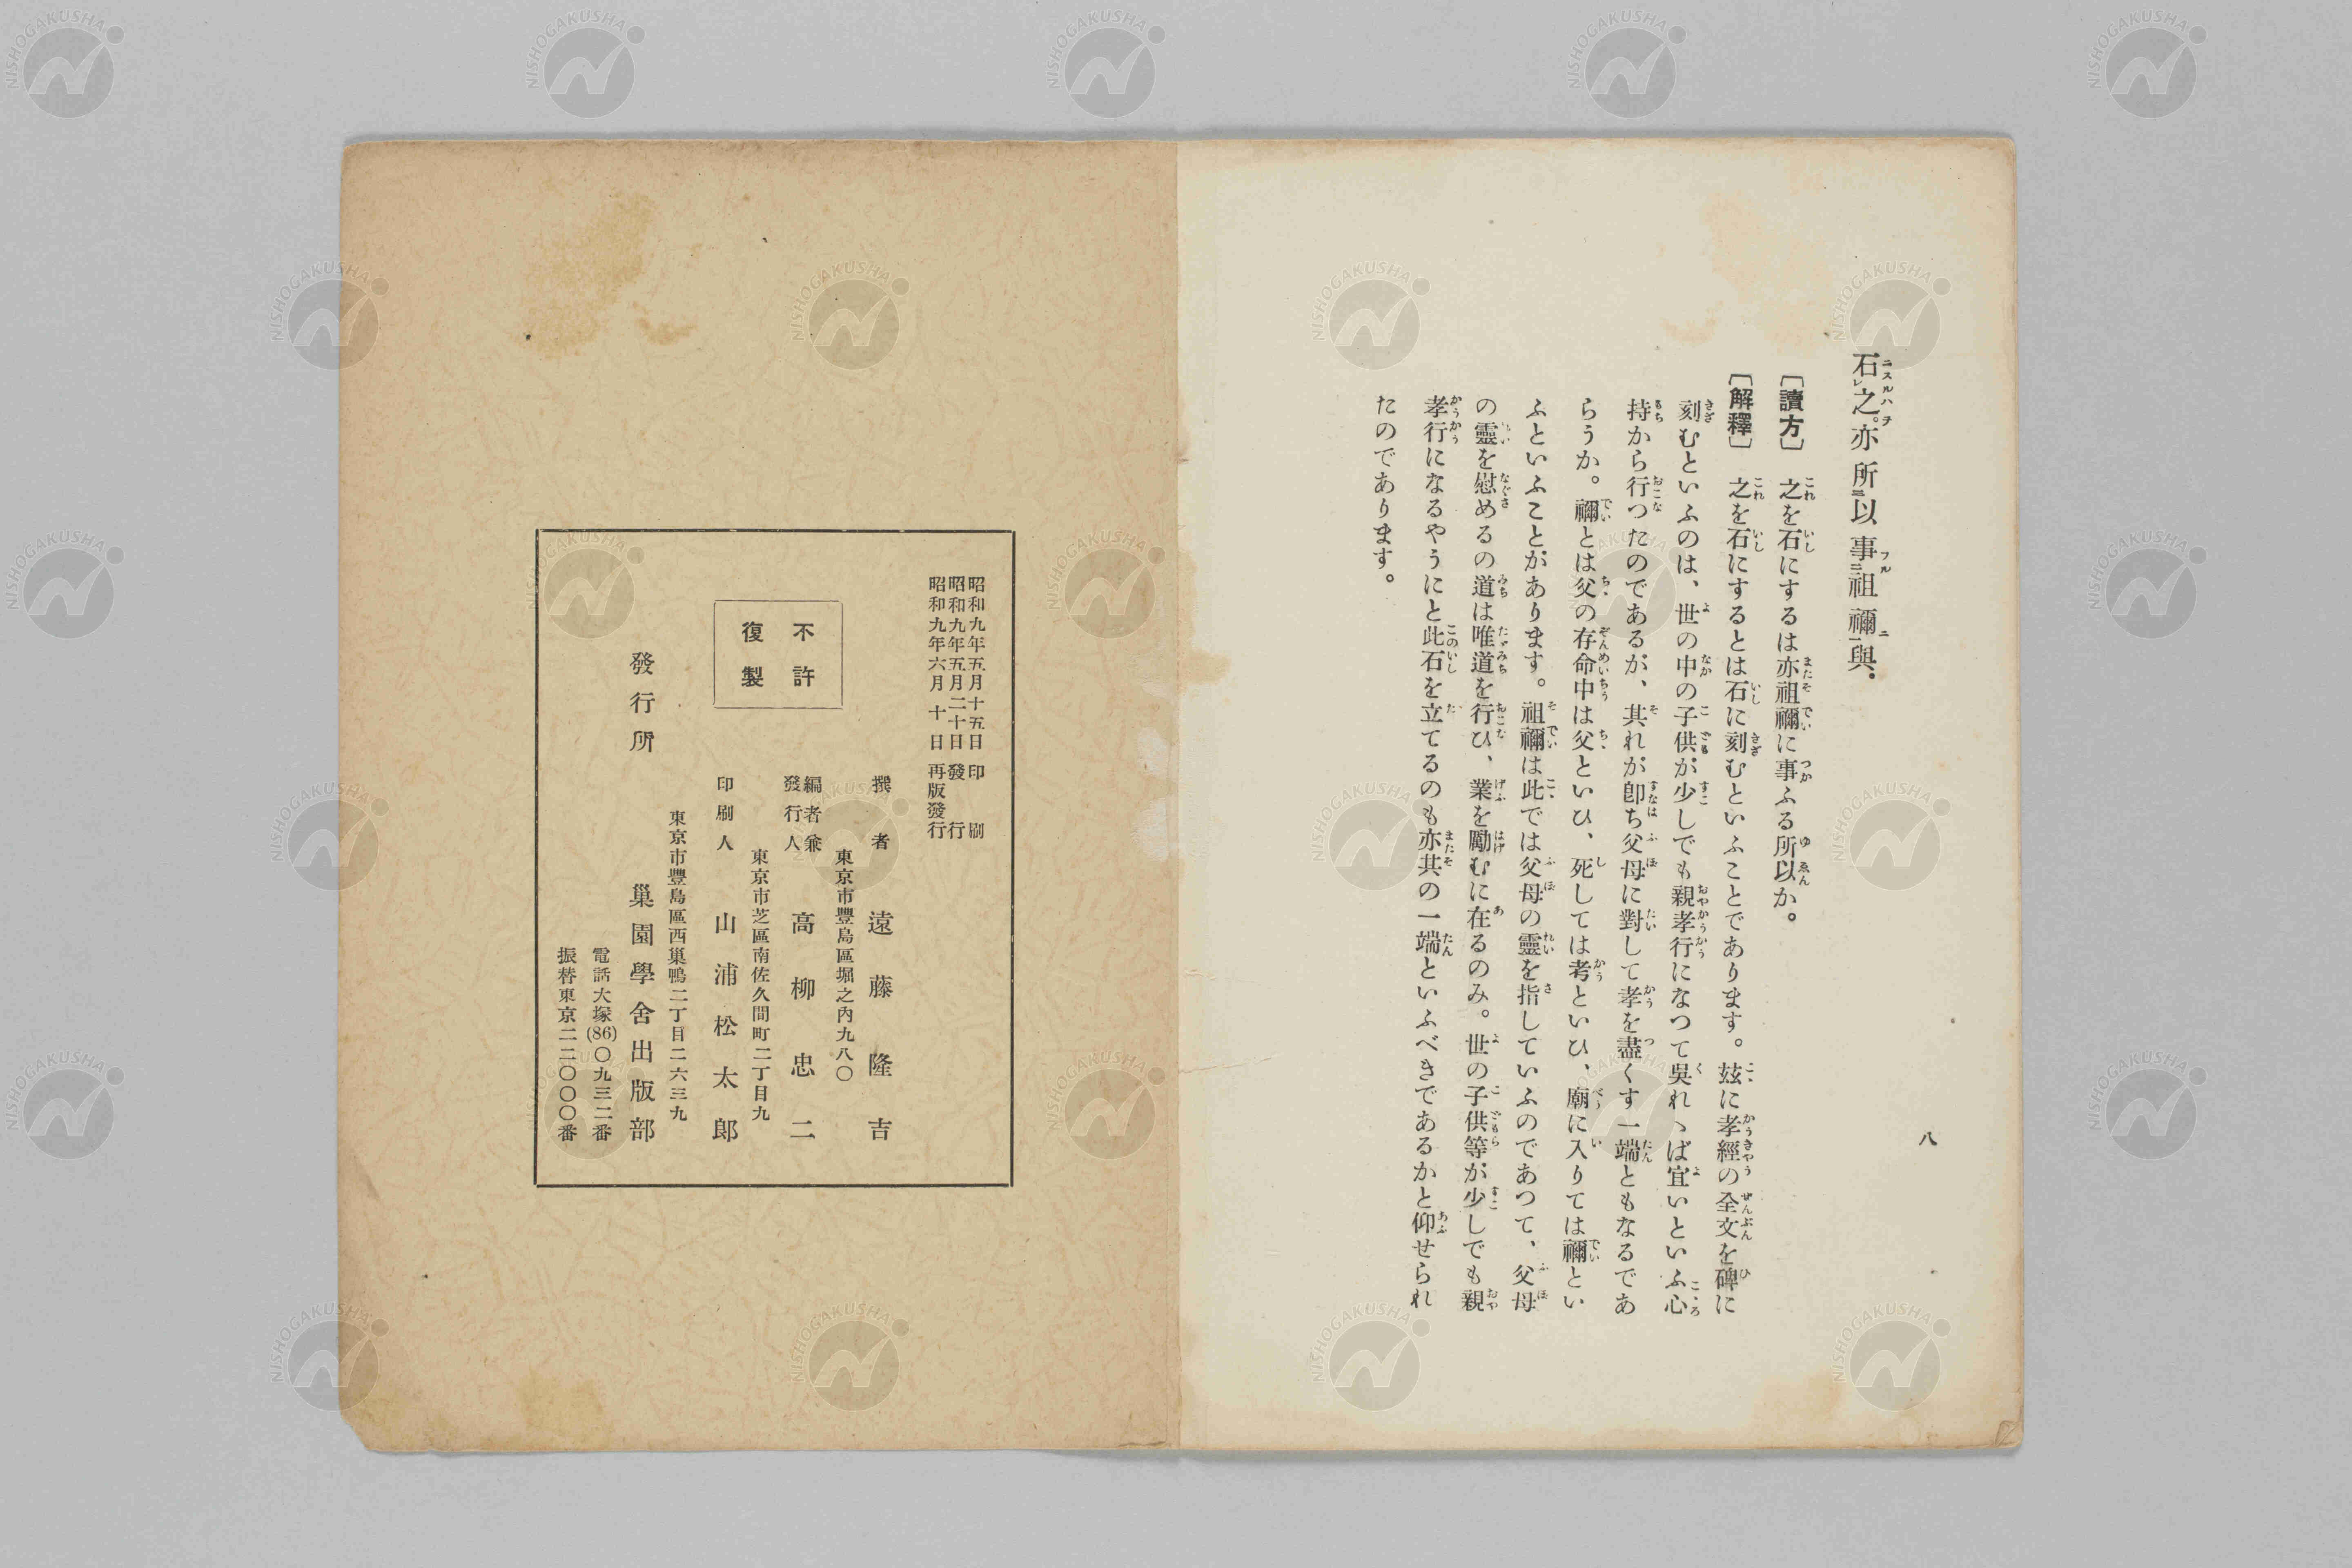 八
石之。亦所以事祖禰與。
〔讀方〕 之を石にするは亦祖禰に事ふる所以か。
〔解釋〕 之を石にするとは石に刻むといふことであります。玆に孝經の全文を碑に
刻むといふのは、世の中の子供が少しでも親孝行になつて吳れゝば宜いといふ心
持から行つたのであるが、其れが卽ち父母に對して孝を盡くす一端ともなるであ
らうか。禰とは父の存命中は父といひ、死しては考といひ、廟に入りては禰とい
ふといふことがあります。祖禰は此では父母の靈を指していふのであつて、父母
の靈を慰めるの道は唯道を行ひ、業を勵むに在るのみ。世の子供等が少しでも親
孝行になるやうにと此石を立てるのも亦其の一端といふべきであるかと仰せられ
たのであります。
昭和九年五月十五日 印刷
昭和九年五月二十日 發行
昭和九年六月十日 再版發行
不許
復製
撰者 遠藤隆吉
東京市豐島區堀之內九八〇
編者兼
發行人 高柳忠二
東京市芝區南佐久間町二丁目九
印刷人 山浦松太郎
東京市豐島區西巢鴨二丁目二六三九
發行所 巢園學舍出版部
電話大塚(86)〇九三二番
振替東京二二〇〇〇番
NISHOGAKUSHA